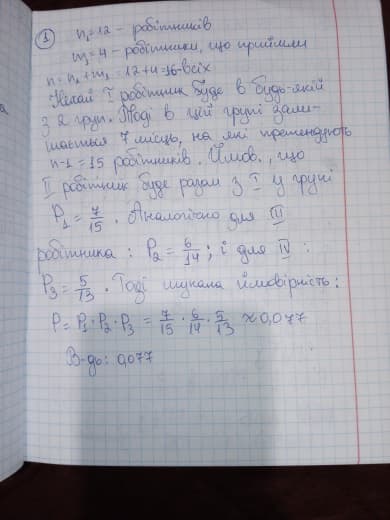 ① n₁=12 – робітників
m₁=4 – робітники, що прийшли
n = n₁ + m₁ = 12+4=16-всіх
Нехай I робітник буде в будь-якій
з 2 груп. Тоді в цій групі зали-
шається 7 місць, на які претендують
n-1 = 15 робітників. Ймов., що
II робітник буде разом з I у групі
P₁ = 7/15. Аналогічно для III
робітника: P₂ = 6/14; і для IV:
P₃ = 5/13. Тоді шукана ймовірність:
P = P₁·P₂·P₃ = 7/15 · 6/14 · 5/13 ≈ 0,077
В-дь: 0,077